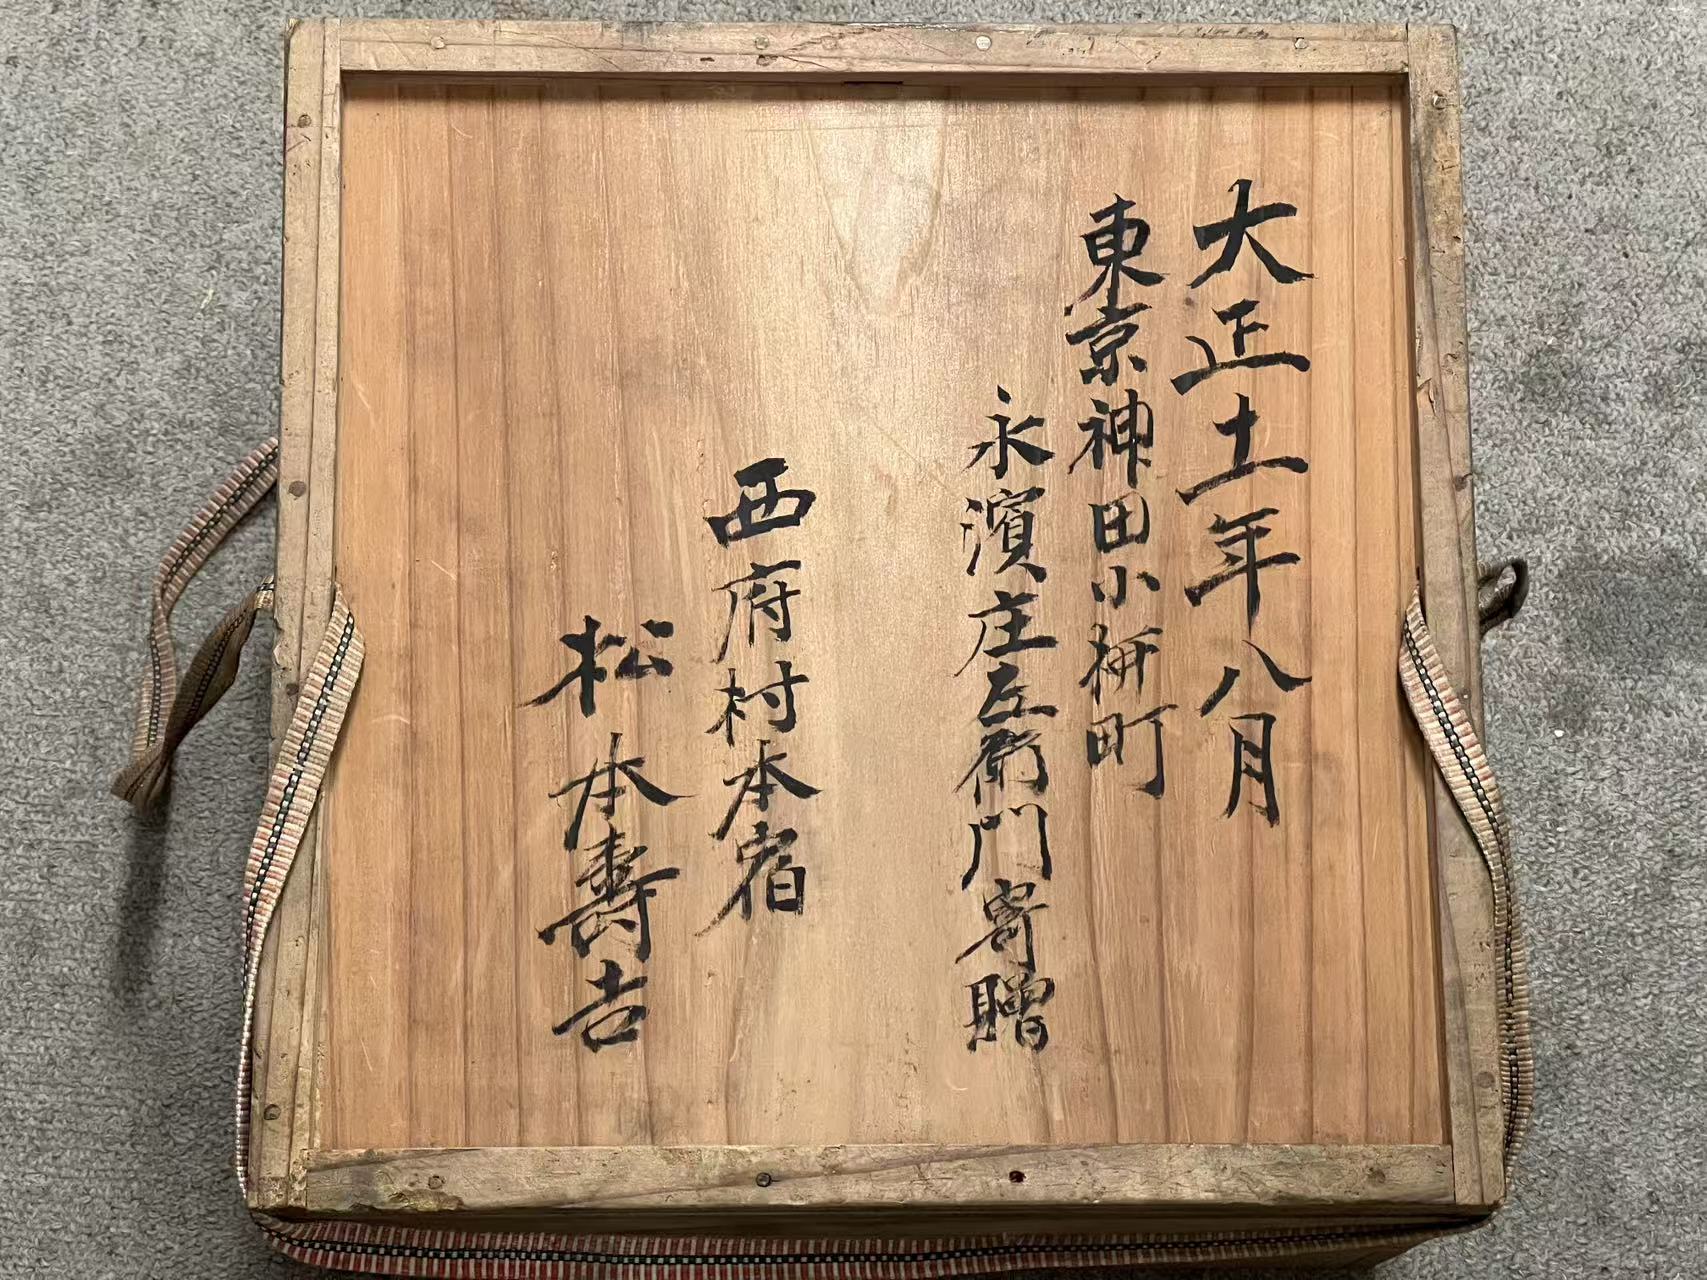 大正十一年八月
東京神田小柳町
永濱庄左衛門寄贈
西府村本宿
松本壽吉